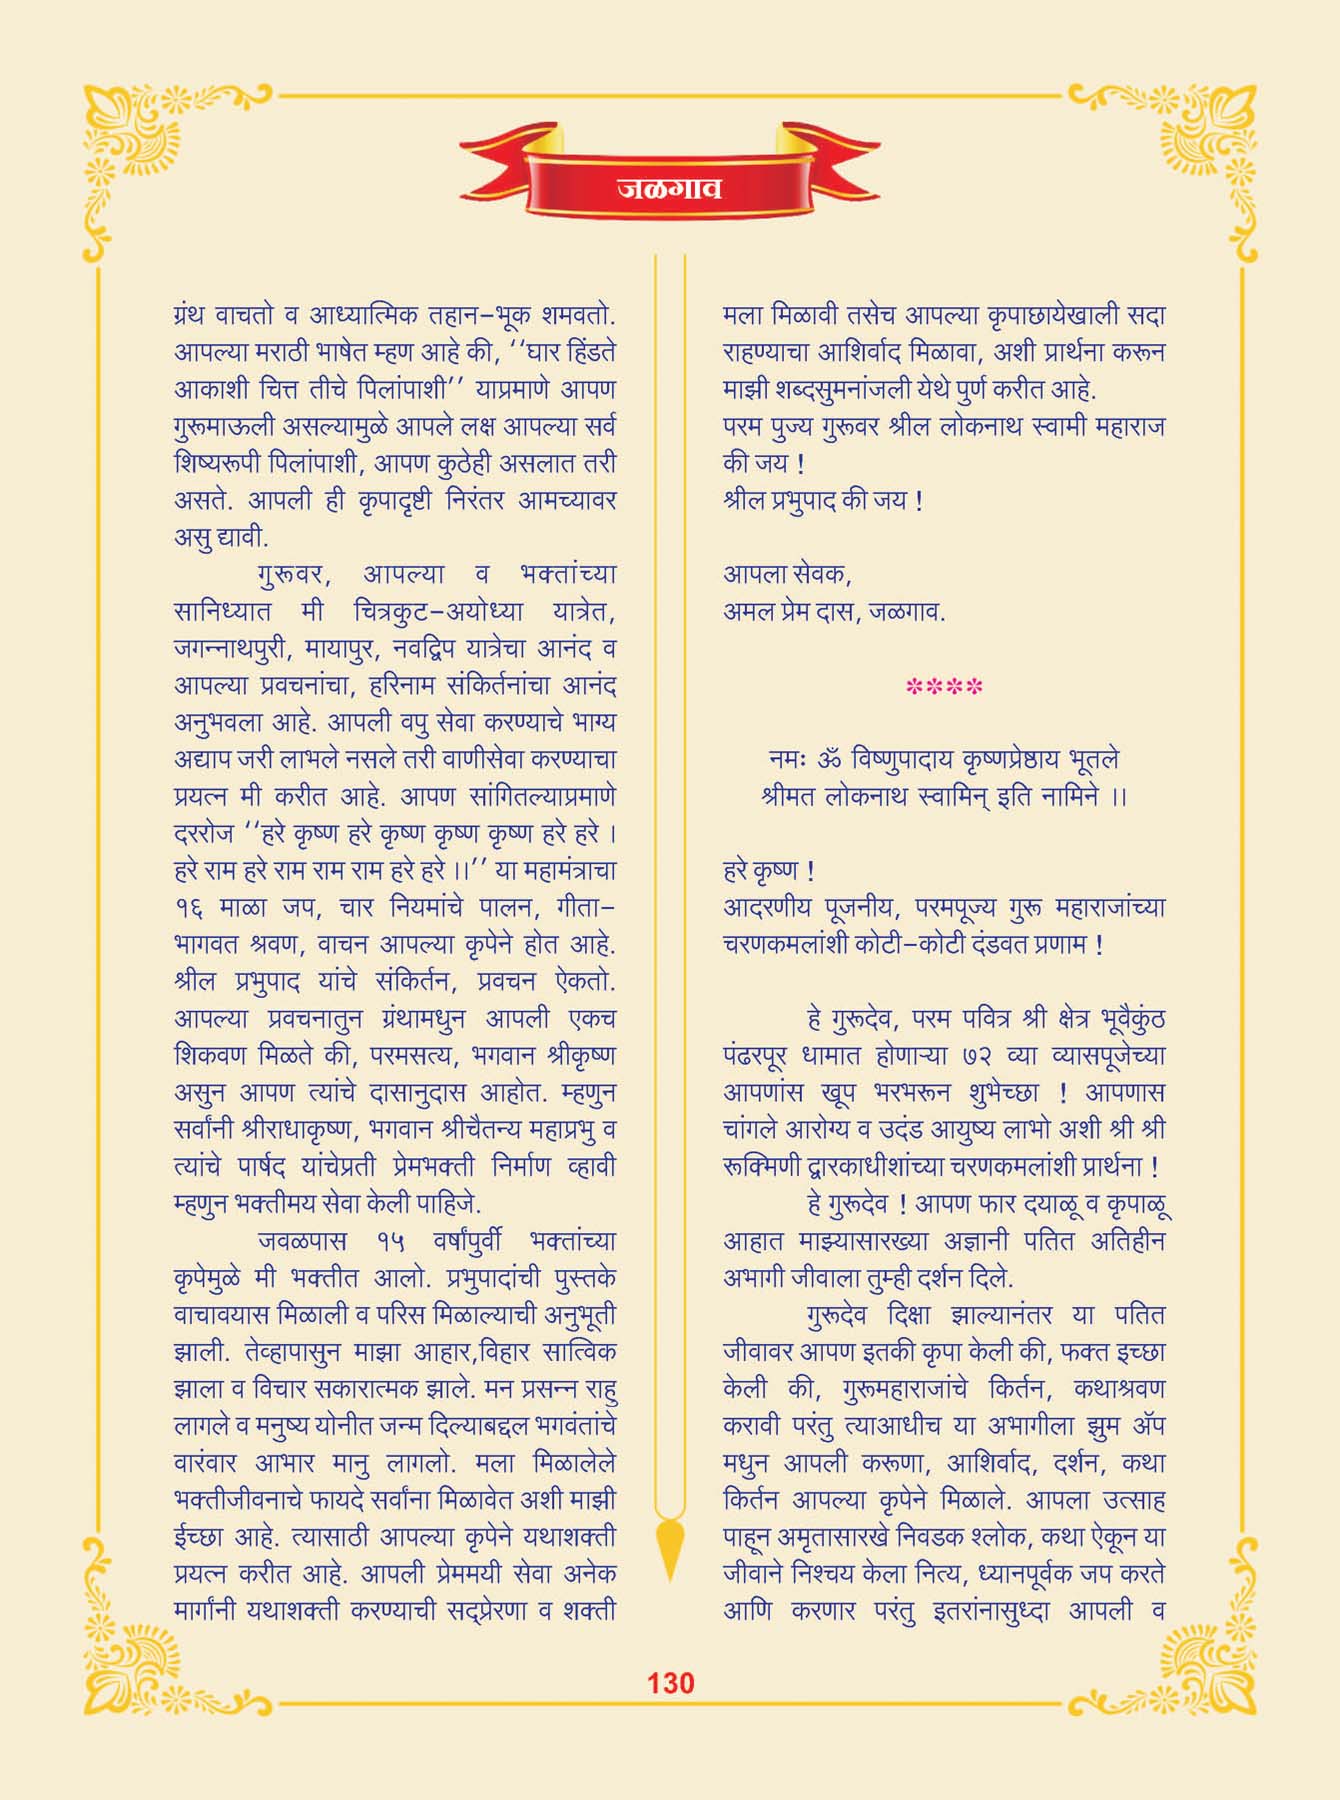 जळगाव
ग्रंथ वाचतो व आध्यात्मिक तहान-भूक शमवतो.
आपल्या मराठी भाषेत म्हण आहे की, ‘‘घार हिंडते
आकाशी चित्त तीचे पिलांपाशी’’ याप्रमाणे आपण
गुरूमाऊली असल्यामुळे आपले लक्ष आपल्या सर्व
शिष्यरूपी पिलांपाशी, आपण कुठेही असलात तरी
असते. आपली ही कृपादृष्टी निरंतर आमच्यावर
असु द्यावी.
गुरूवर, आपल्या व भक्तांच्या
सानिध्यात मी चित्रकुट-अयोध्या यात्रेत,
जगन्नाथपुरी, मायापुर, नवद्विप यात्रेचा आनंद व
आपल्या प्रवचनांचा, हरिनाम संकिर्तनांचा आनंद
अनुभवला आहे. आपली वपु सेवा करण्याचे भाग्य
अद्याप जरी लाभले नसले तरी वाणीसेवा करण्याचा
प्रयत्न मी करीत आहे. आपण सांगितल्याप्रमाणे
दररोज ‘‘हरे कृष्ण हरे कृष्ण कृष्ण कृष्ण हरे हरे ।
हरे राम हरे राम राम राम हरे हरे ।।’’ या महामंत्राचा
१६ माळा जप, चार नियमांचे पालन, गीता-
भागवत श्रवण, वाचन आपल्या कृपेने होत आहे.
श्रील प्रभुपाद यांचे संकिर्तन, प्रवचन ऐकतो.
आपल्या प्रवचनातुन ग्रंथामधुन आपली एकच
शिकवण मिळते की, परमसत्य, भगवान श्रीकृष्ण
असुन आपण त्यांचे दासानुदास आहोत. म्हणुन
सर्वांनी श्रीराधाकृष्ण, भगवान श्रीचैतन्य महाप्रभु व
त्यांचे पार्षद यांचेप्रती प्रेमभक्ती निर्माण व्हावी
म्हणुन भक्तीमय सेवा केली पाहिजे.
जवळपास १५ वर्षांपुर्वी भक्तांच्या
कृपेमुळे मी भक्तीत आलो. प्रभुपादांची पुस्तके
वाचावयास मिळाली व परिस मिळाल्याची अनुभूती
झाली. तेव्हापासुन माझा आहार,विहार सात्विक
झाला व विचार सकारात्मक झाले. मन प्रसन्न राहु
लागले व मनुष्य योनीत जन्म दिल्याबद्दल भगवंतांचे
वारंवार आभार मानु लागलो. मला मिळालेले
भक्तीजीवनाचे फायदे सर्वांना मिळावेत अशी माझी
ईच्छा आहे. त्यासाठी आपल्या कृपेने यथाशक्ती
प्रयत्न करीत आहे. आपली प्रेममयी सेवा अनेक
मार्गांनी यथाशक्ती करण्याची सद्प्रेरणा व शक्ती
मला मिळावी तसेच आपल्या कृपाछायेखाली सदा
राहण्याचा आशिर्वाद मिळावा, अशी प्रार्थना करून
माझी शब्दसुमनांजली येथे पुर्ण करीत आहे.
परम पुज्य गुरूवर श्रील लोकनाथ स्वामी महाराज
की जय !
श्रील प्रभुपाद की जय !
आपला सेवक,
अमल प्रेम दास, जळगाव.
****
नमः ॐ विष्णुपादाय कृष्णप्रेष्ठाय भूतले
श्रीमत लोकनाथ स्वामिन् इति नामिने ।।
हरे कृष्ण !
आदरणीय पूजनीय, परमपूज्य गुरू महाराजांच्या
चरणकमलांशी कोटी-कोटी दंडवत प्रणाम !
हे गुरूदेव, परम पवित्र श्री क्षेत्र भूवैकुंठ
पंढरपूर धामात होणाऱ्या ७२ व्या व्यासपूजेच्या
आपणांस खूप भरभरून शुभेच्छा ! आपणास
चांगले आरोग्य व उदंड आयुष्य लाभो अशी श्री श्री
रूक्मिणी द्वारकाधीशांच्या चरणकमलांशी प्रार्थना !
हे गुरूदेव ! आपण फार दयाळू व कृपाळू
आहात माझ्यासारख्या अज्ञानी पतित अतिहीन
अभागी जीवाला तुम्ही दर्शन दिले.
गुरूदेव दिक्षा झाल्यानंतर या पतित
जीवावर आपण इतकी कृपा केली की, फक्त इच्छा
केली की, गुरूमहाराजांचे किर्तन, कथाश्रवण
करावी परंतु त्याआधीच या अभागीला झुम ॲप
मधुन आपली करूणा, आशिर्वाद, दर्शन, कथा
किर्तन आपल्या कृपेने मिळाले. आपला उत्साह
पाहून अमृतासारखे निवडक श्लोक, कथा ऐकून या
जीवाने निश्चय केला नित्य, ध्यानपूर्वक जप करते
आणि करणार परंतु इतरांनासुध्दा आपली व
130